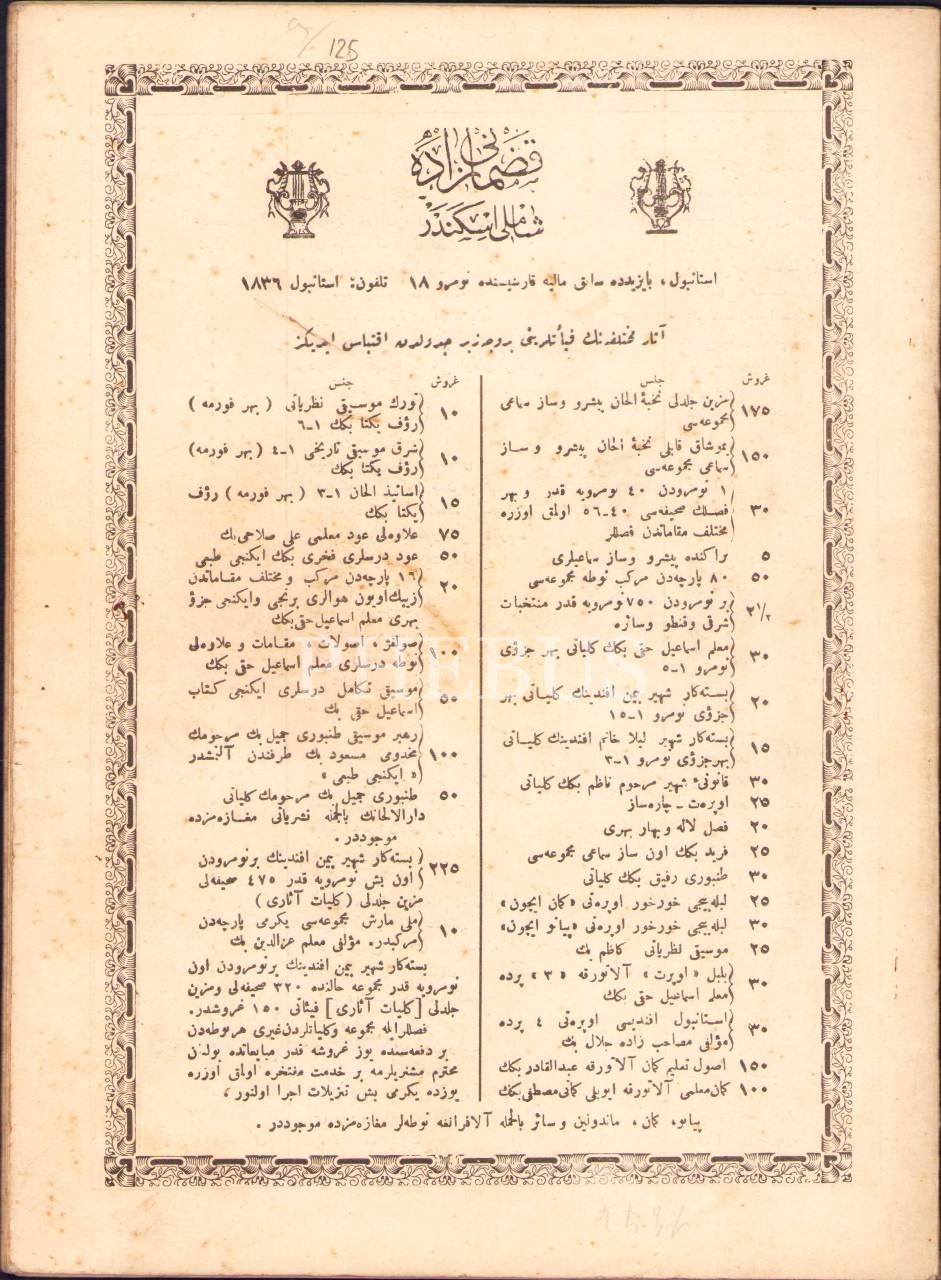 125
قضمانی زاده
شاملی اسكندر
استانبول، بایزیدده سابق مالیه قارشیسنده نومرو ۱۸ تلفون: استانبول ۱۸۳۶
آثار مختلفه‌نك فیأتلرینی بروجه زیر جدولدن اقتباس ایدیكز
غروش جنس
۱۷۵ مزین جلدلی نخبۀ الحان پیشرو وساز سماعی
مجموعه‌سی
۱۵۰ یموشاق قابلی نخبۀ الحان پیشرو وساز
سماعی مجموعه‌سی
۳۰ ۱ نومرودن ۴۰ نومرویه قدر و بهر
فصلك صحیفه‌سی ۴۰-۵۶ اولمق اوزره
مختلف مقاماتدن فصللر
۵ پراكنده پیشرو وساز سماعیلری
۵۰ ۸۰ پارچه‌دن مركب نوطه مجموعه‌سی
۲ ۱/۲ بر نومرودن ۷۵۰ نومرویه قدر منتخبات
شرقی وقنطو وسائره
۳۰ معلم اسماعیل حقی بكك كلیاتی بهر جزؤی
نومرو ۱-۵
۲۰ بسته‌كار شهیر بیمن افندینك كلیاتی بهر
جزؤی نومرو ۱-۱۵
۱۵ بسته‌كار شهیر لیلا خانم افندینك كلیاتی
بهرجزؤی نومرو ۱-۳
۳۰ قانونیٔ شهیر مرحوم ناظم بكك كلیاتی
۲۵ اوپره‌ت - چاره‌ساز
۲۰ فصل لاله وبهار بهری
۲۵ فرید بكك اون ساز سماعی مجموعه‌سی
۳۰ طنبوری رفیق بكك كلیاتی
۲۵ لبله‌بیجی خورخور اوپره‌تی «كمان ایچون»
۳۰ لبله‌بیجی خورخور اوپره‌تی «پیانو ایچون»
۲۵ موسیقی نظریاتی كاظم بك
۳۰ بلبل «اوپرت» آلاتورقه «۳» پرده
معلم اسماعیل حقی بكك
۳۰ استانبول افندیسی اوپره‌تی ۴ پرده
مؤلفی مصاحب زاده جلال بك
۱۵۰ اصول تعلیم كمان آلاتورقه عبدالقادر بكك
۱۰۰ كمان معلمی آلاتورقه ایوبلی كمانی مصطفی بكك
غروش جنس
۱۰ تورك موسیقی نظریاتی ( بهر فورمه )
رؤف یكتا بكك ۱-۶
۱۰ شرق موسیقی تاریخی ۱-۴ (بهر فورمه)
رؤف یكتا بكك
۱۵ اساتیذ الحان ۱-۳ ( بهر فورمه ) رؤف
یكتا بكك
۷۵ علاوه‌لی عود معلمی علی صلاحی بك
۵۰ عود درسلری فخری بكك ایكنجی طبعی
۲۰ ۱۶ پارچه‌دن مركب و مختلف مقاماتدن
زیبك اویون هوالری برنجی وایكنجی جزؤ
بهری معلم اسماعیل حقی بكك
۱۰۰ صولفژ، اصولات، مقامات و علاوه‌لی
نوطه درسلری معلم اسماعیل حقی بكك
۵۰ موسیقی تكامل درسلری ایكنجی كتاب
اسماعیل حقی بك
۱۰۰ رهبر موسیقی طنبوری جمیل بك مرحومك
مخدومی مسعود بك طرفندن آلنمشدر
« ایكنجی طبعی »
۵۰ طنبوری جمیل بك مرحومك كلیاتی
دارالالحانك بالجمله نشریاتی مغازه‌مزده
موجوددر.
۲۲۵ بسته‌كار شهیر بیمن افندینك برنومرودن
اون بش نومرویه قدر ۴۷۵ صحیفه‌لی
مزین جلدلی (كلیات آثاری)
۱۰ ملی مارش مجموعه‌سی یكرمی پارچه‌دن
مركبدر. مؤلفی معلم عزالدین بك
بسته‌كار شهیر بیمن افندینك برنومرودن اون
نومرویه قدر مجموعه حالنده ۳۲۰ صحیفه‌لی ومزین
جلدلی [كلیات آثاری] فیئاتی ۱۵۰ غروشدر.
فصللر ایله مجموعه وكلیاتلردن غیری هرنوطه‌دن
بر دفعه‌سنده یوز غروشه قدر مبایعاتده بولنان
محترم مشتریلرمه بر خدمت مفتخره اولمق اوزره
یوزده یكرمی بش تنزیلات اجرا اولنور،
پیانو، كمان، ماندولین وسائر بالجمله آلافرانغه نوطه‌لر مغازه‌مزده موجوددر.
PHEBUS